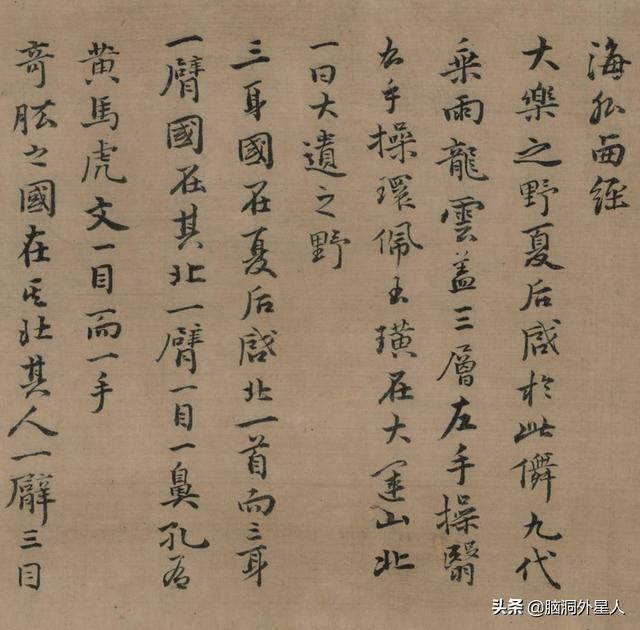 海外西經
大樂之野夏后啟於此儛九代
乗兩龍雲蓋三層左手操翳
右手操環佩玉璜在大運山北
一曰大遺之野
三身國在夏后啟北一首而三身
一臂國在其北一臂一目一鼻孔有
黃馬虎文一目而一手
奇肱之國在其北其人一臂三目
头条 @脑洞外星人